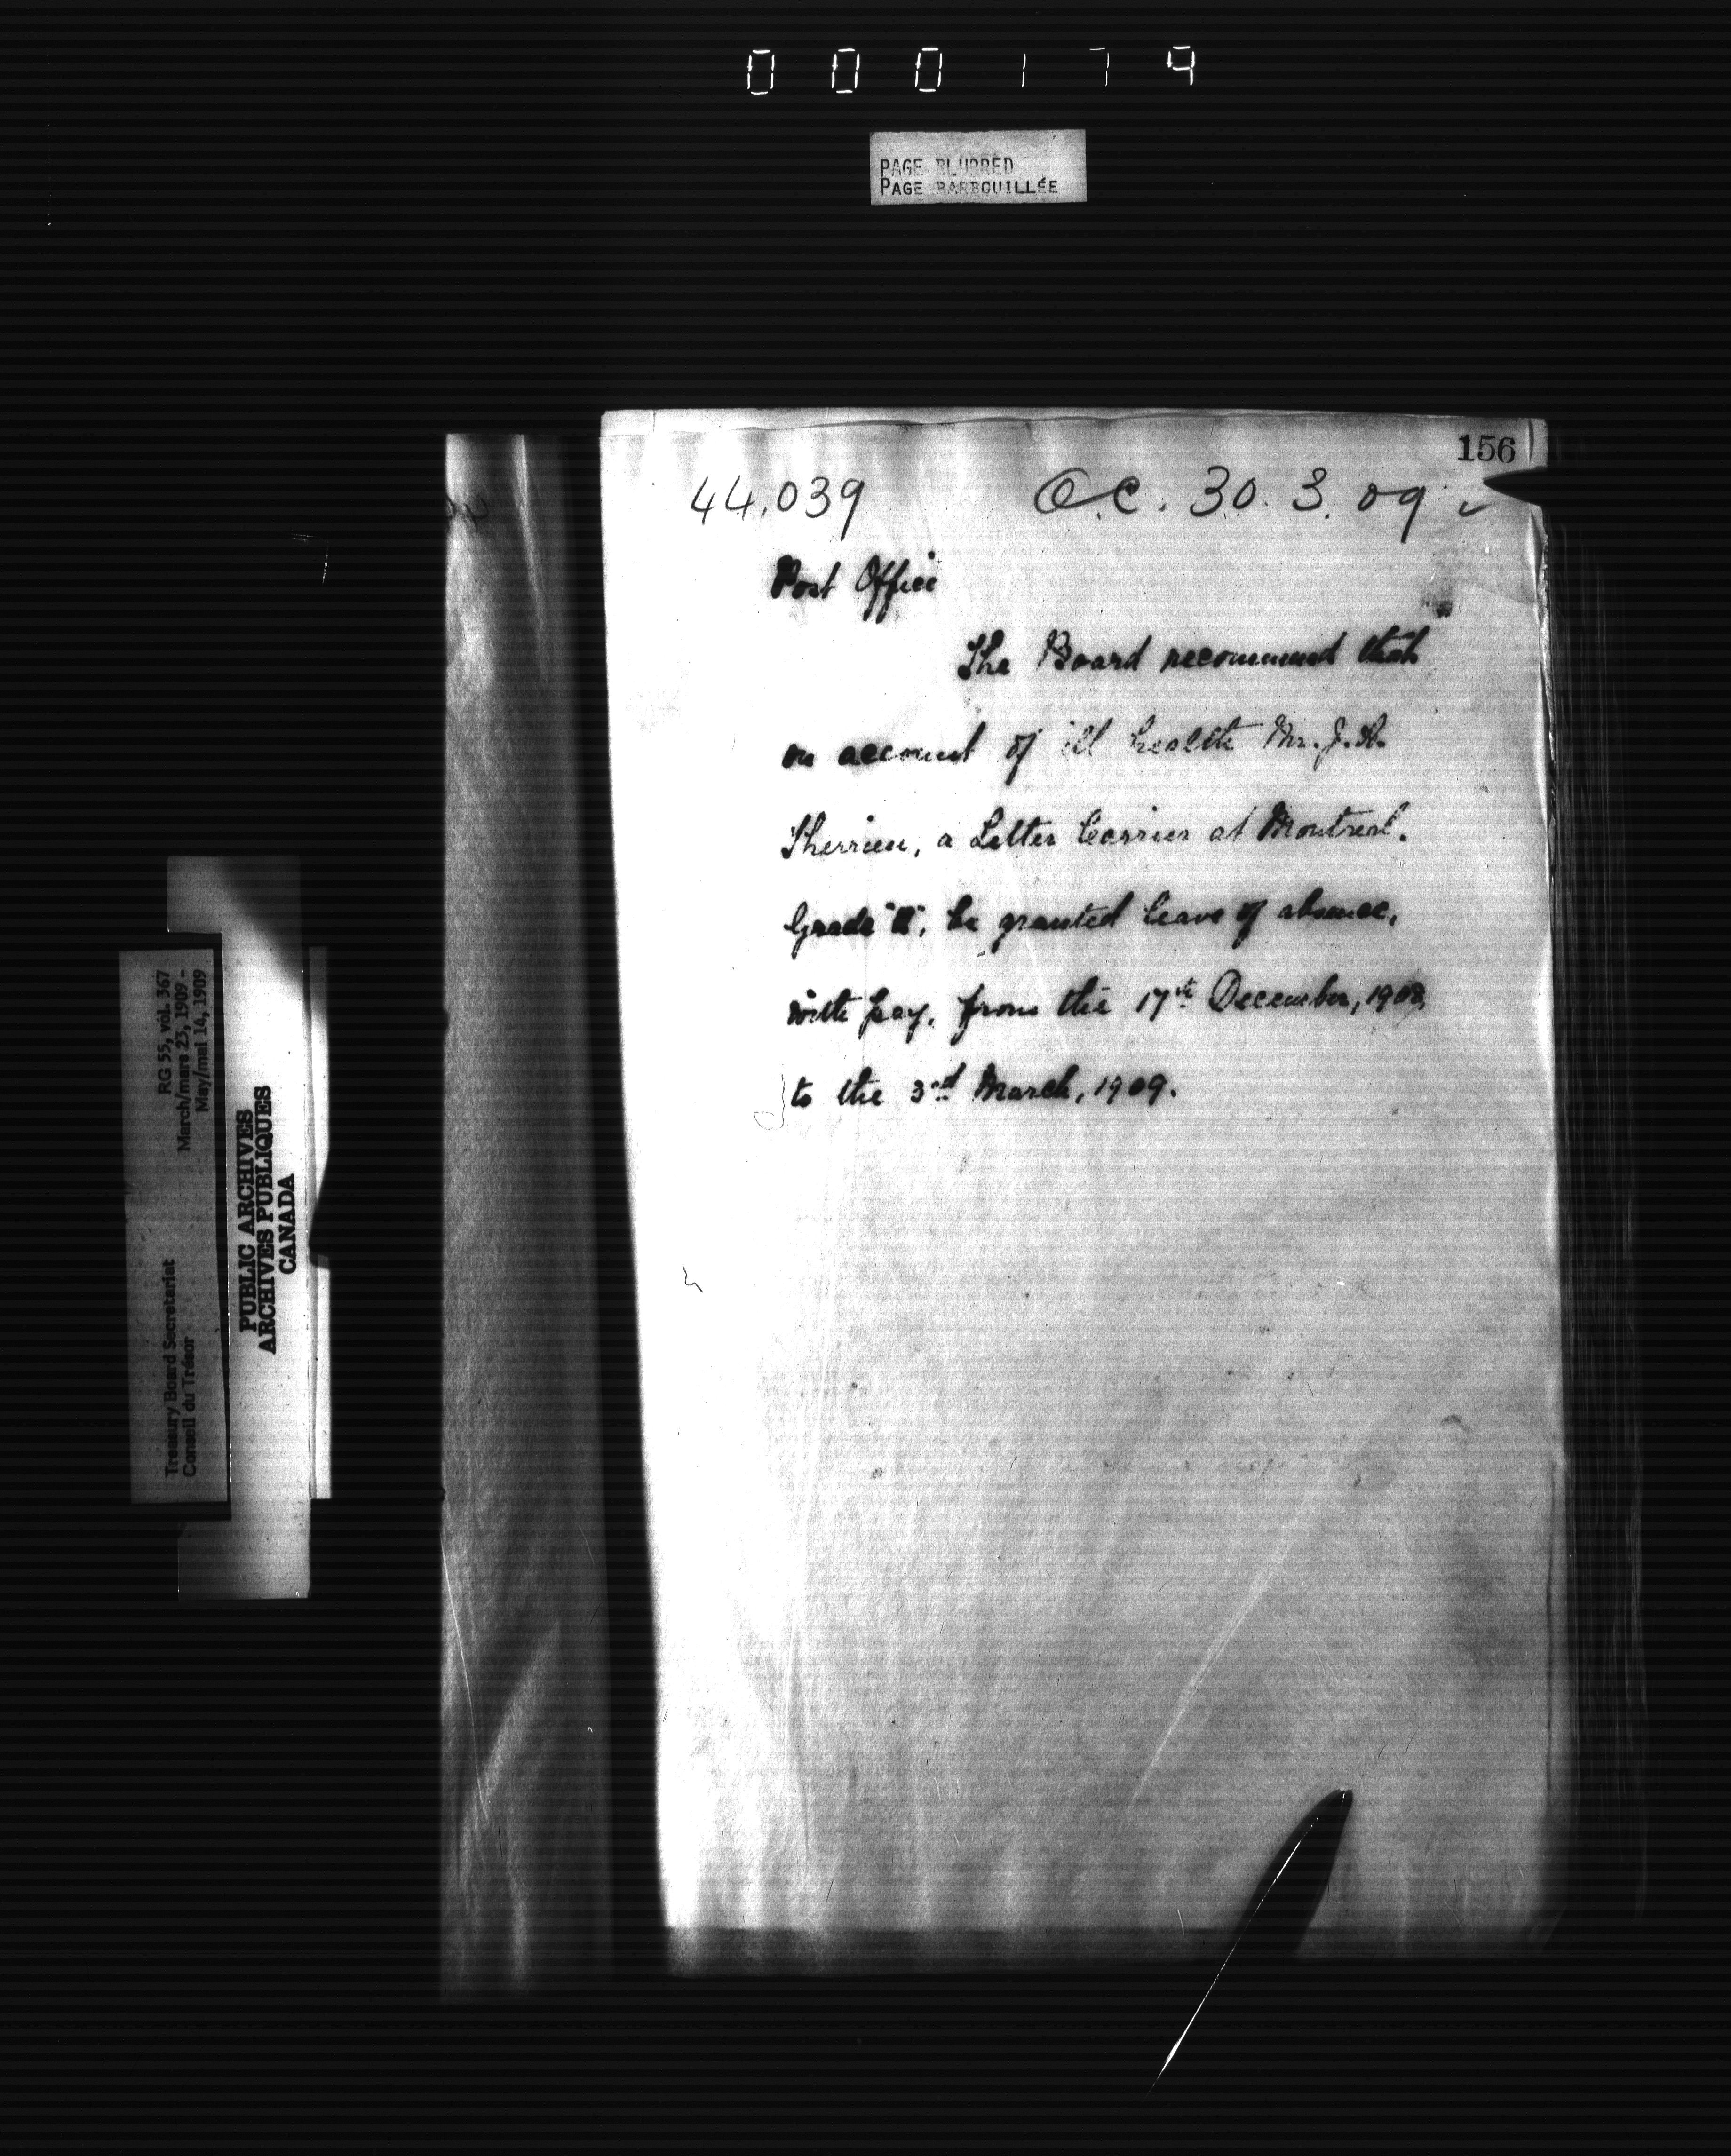 000179
PAGE BLURRED
PAGE BARBOUILLÉE
156
44.039 O.C. 30.3.09
Post Office
The Board recommend that
on account of ill health Mr. J. A.
Therrien, a Letter Carrier at Montreal.
Grade be granted leave of absence,
with pay, from the 17th December, 1908,
to the 3rd March, 1909.
RG 55, vol. 367
March/mars 23, 1909 -
May/mai 14, 1909
Treasury Board Secretariat
Conseil du Trésor
PUBLIC ARCHIVES
ARCHIVES PUBLIQUES
CANADA